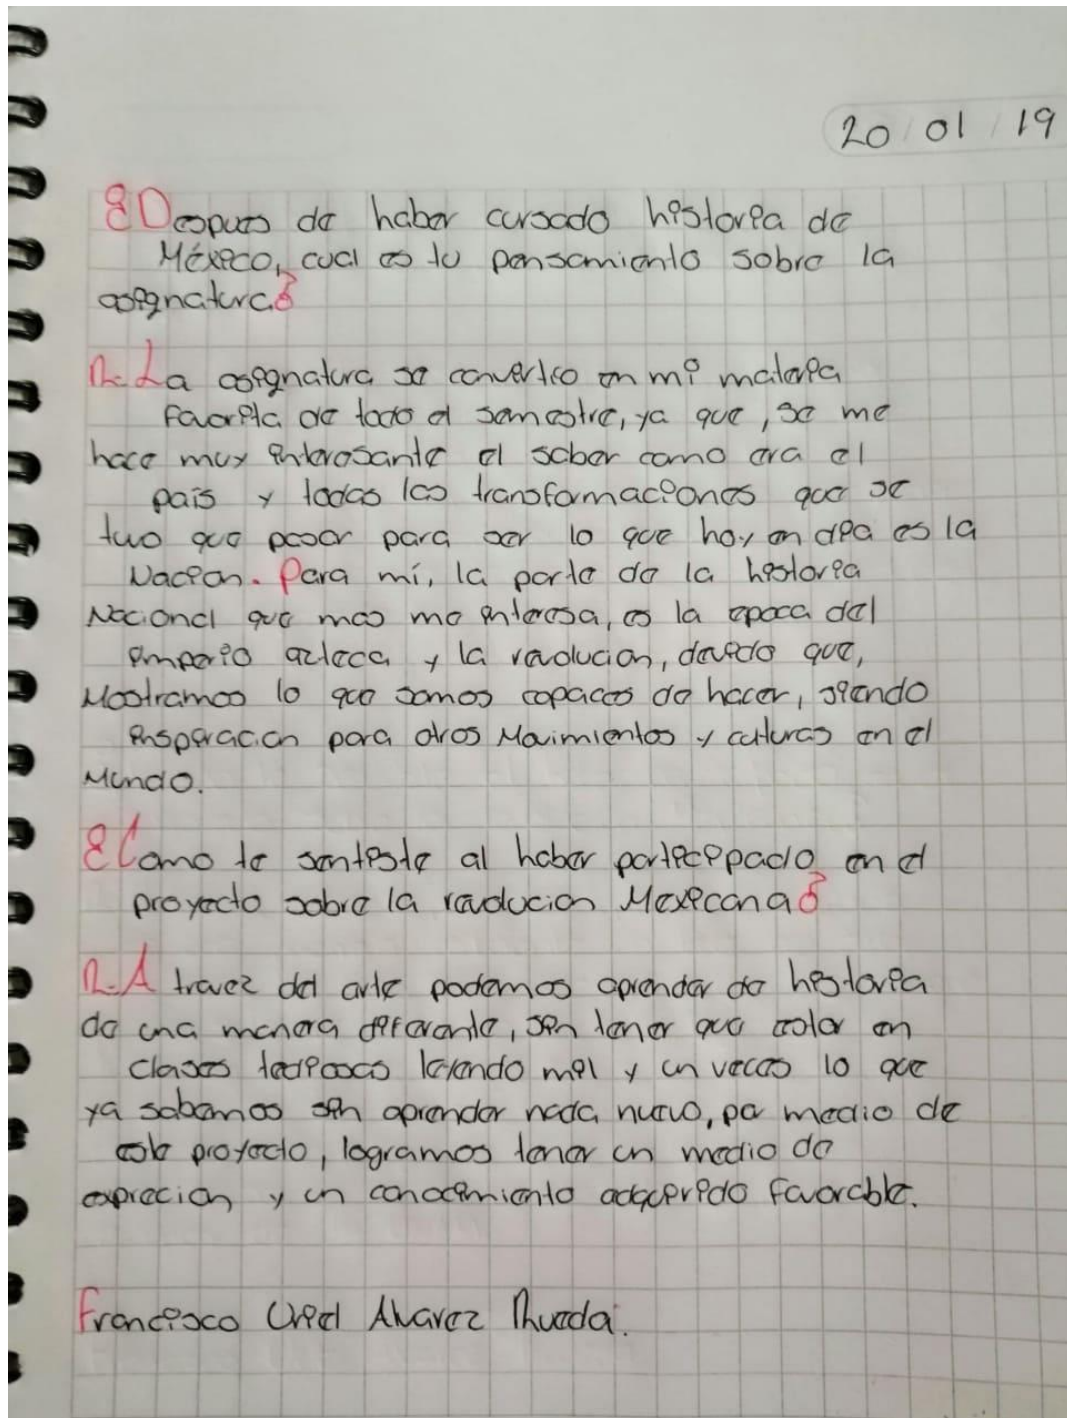 20 / 01 / 19
¿Despues de haber cursado historia de
México, cual es tu pensamiento sobre la
asignatura?
R.- La asignatura se convertio en mi materia
favorita de todo el semestre, ya que, se me
hace muy interesante el saber como era el
país y todas las transformaciones que se
tuvo que pasar para ser lo que hoy en dia es la
Nacion. Para mí, la parte de la historia
Nacional que mas me interesa, es la epoca del
imperio azteca y la revolucion, devido que,
Mostramos lo que somos capaces de hacer, siendo
inspiracion para otros Movimientos y culturas en el
Mundo.
¿Como te sentiste al haber participado en el
proyecto sobre la revolucion Mexicana?
R.- A travez del arte podemos aprender de historia
de una manera diferente, sin tener que estar en
clases tediosas leiendo mil y un veces lo que
ya sabemos sin aprender nada nuevo, por medio de
este proyecto, logramos tener un medio de
exprecion y un conocimiento adquerido favorable.
Francisco Uriel Alvarez Rueda.